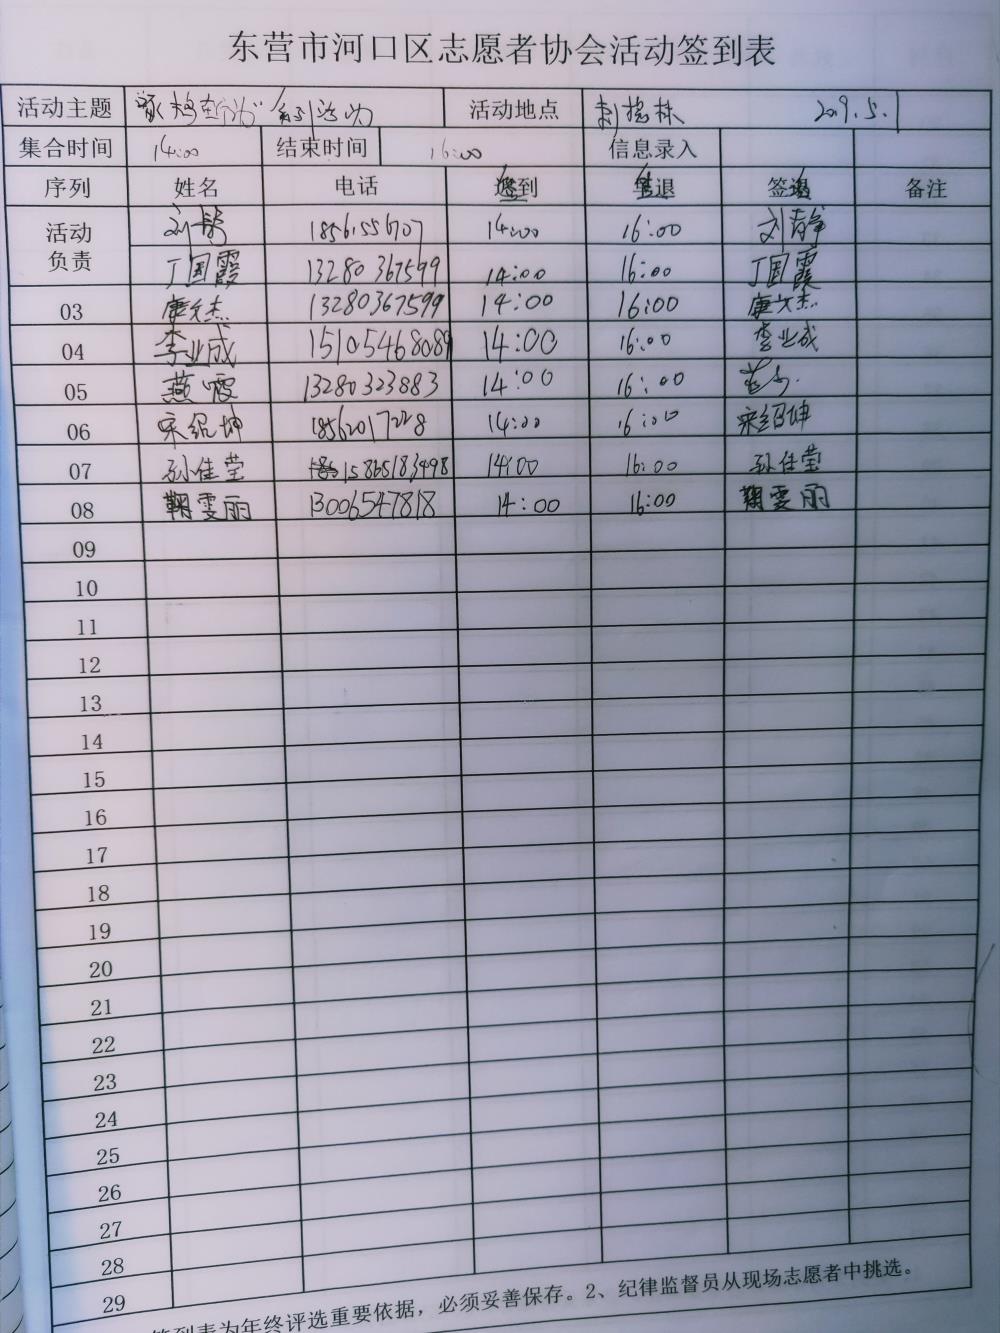 东营市河口区志愿者协会活动签到表
活动主题 系列活动 活动地点 刺槐林 2019.5.1
集合时间 14:00 结束时间 16:00 信息录入
序列 姓名 电话 签到 签退 备注
活动负责 刘静 18561556707 14:00 16:00 刘静
丁国霞 13280367599 14:00 16:00 丁国霞
03 唐文杰 13280367599 14:00 16:00 唐文杰
04 李业成 15105468089 14:00 16:00 李业成
05 燕霞 13280323883 14:00 16:00
06 宋绍坤 18562017228 14:00 16:00 宋绍坤
07 孙佳莹 15865183498 14:00 16:00 孙佳莹
08 鞠雯丽 13006547818 14:00 16:00 鞠雯丽
09
10
11
12
13
14
15
16
17
18
19
20
21
22
23
24
25
26
27
28
29
签到表为年终评选重要依据，必须妥善保存。2、纪律监督员从现场志愿者中挑选。